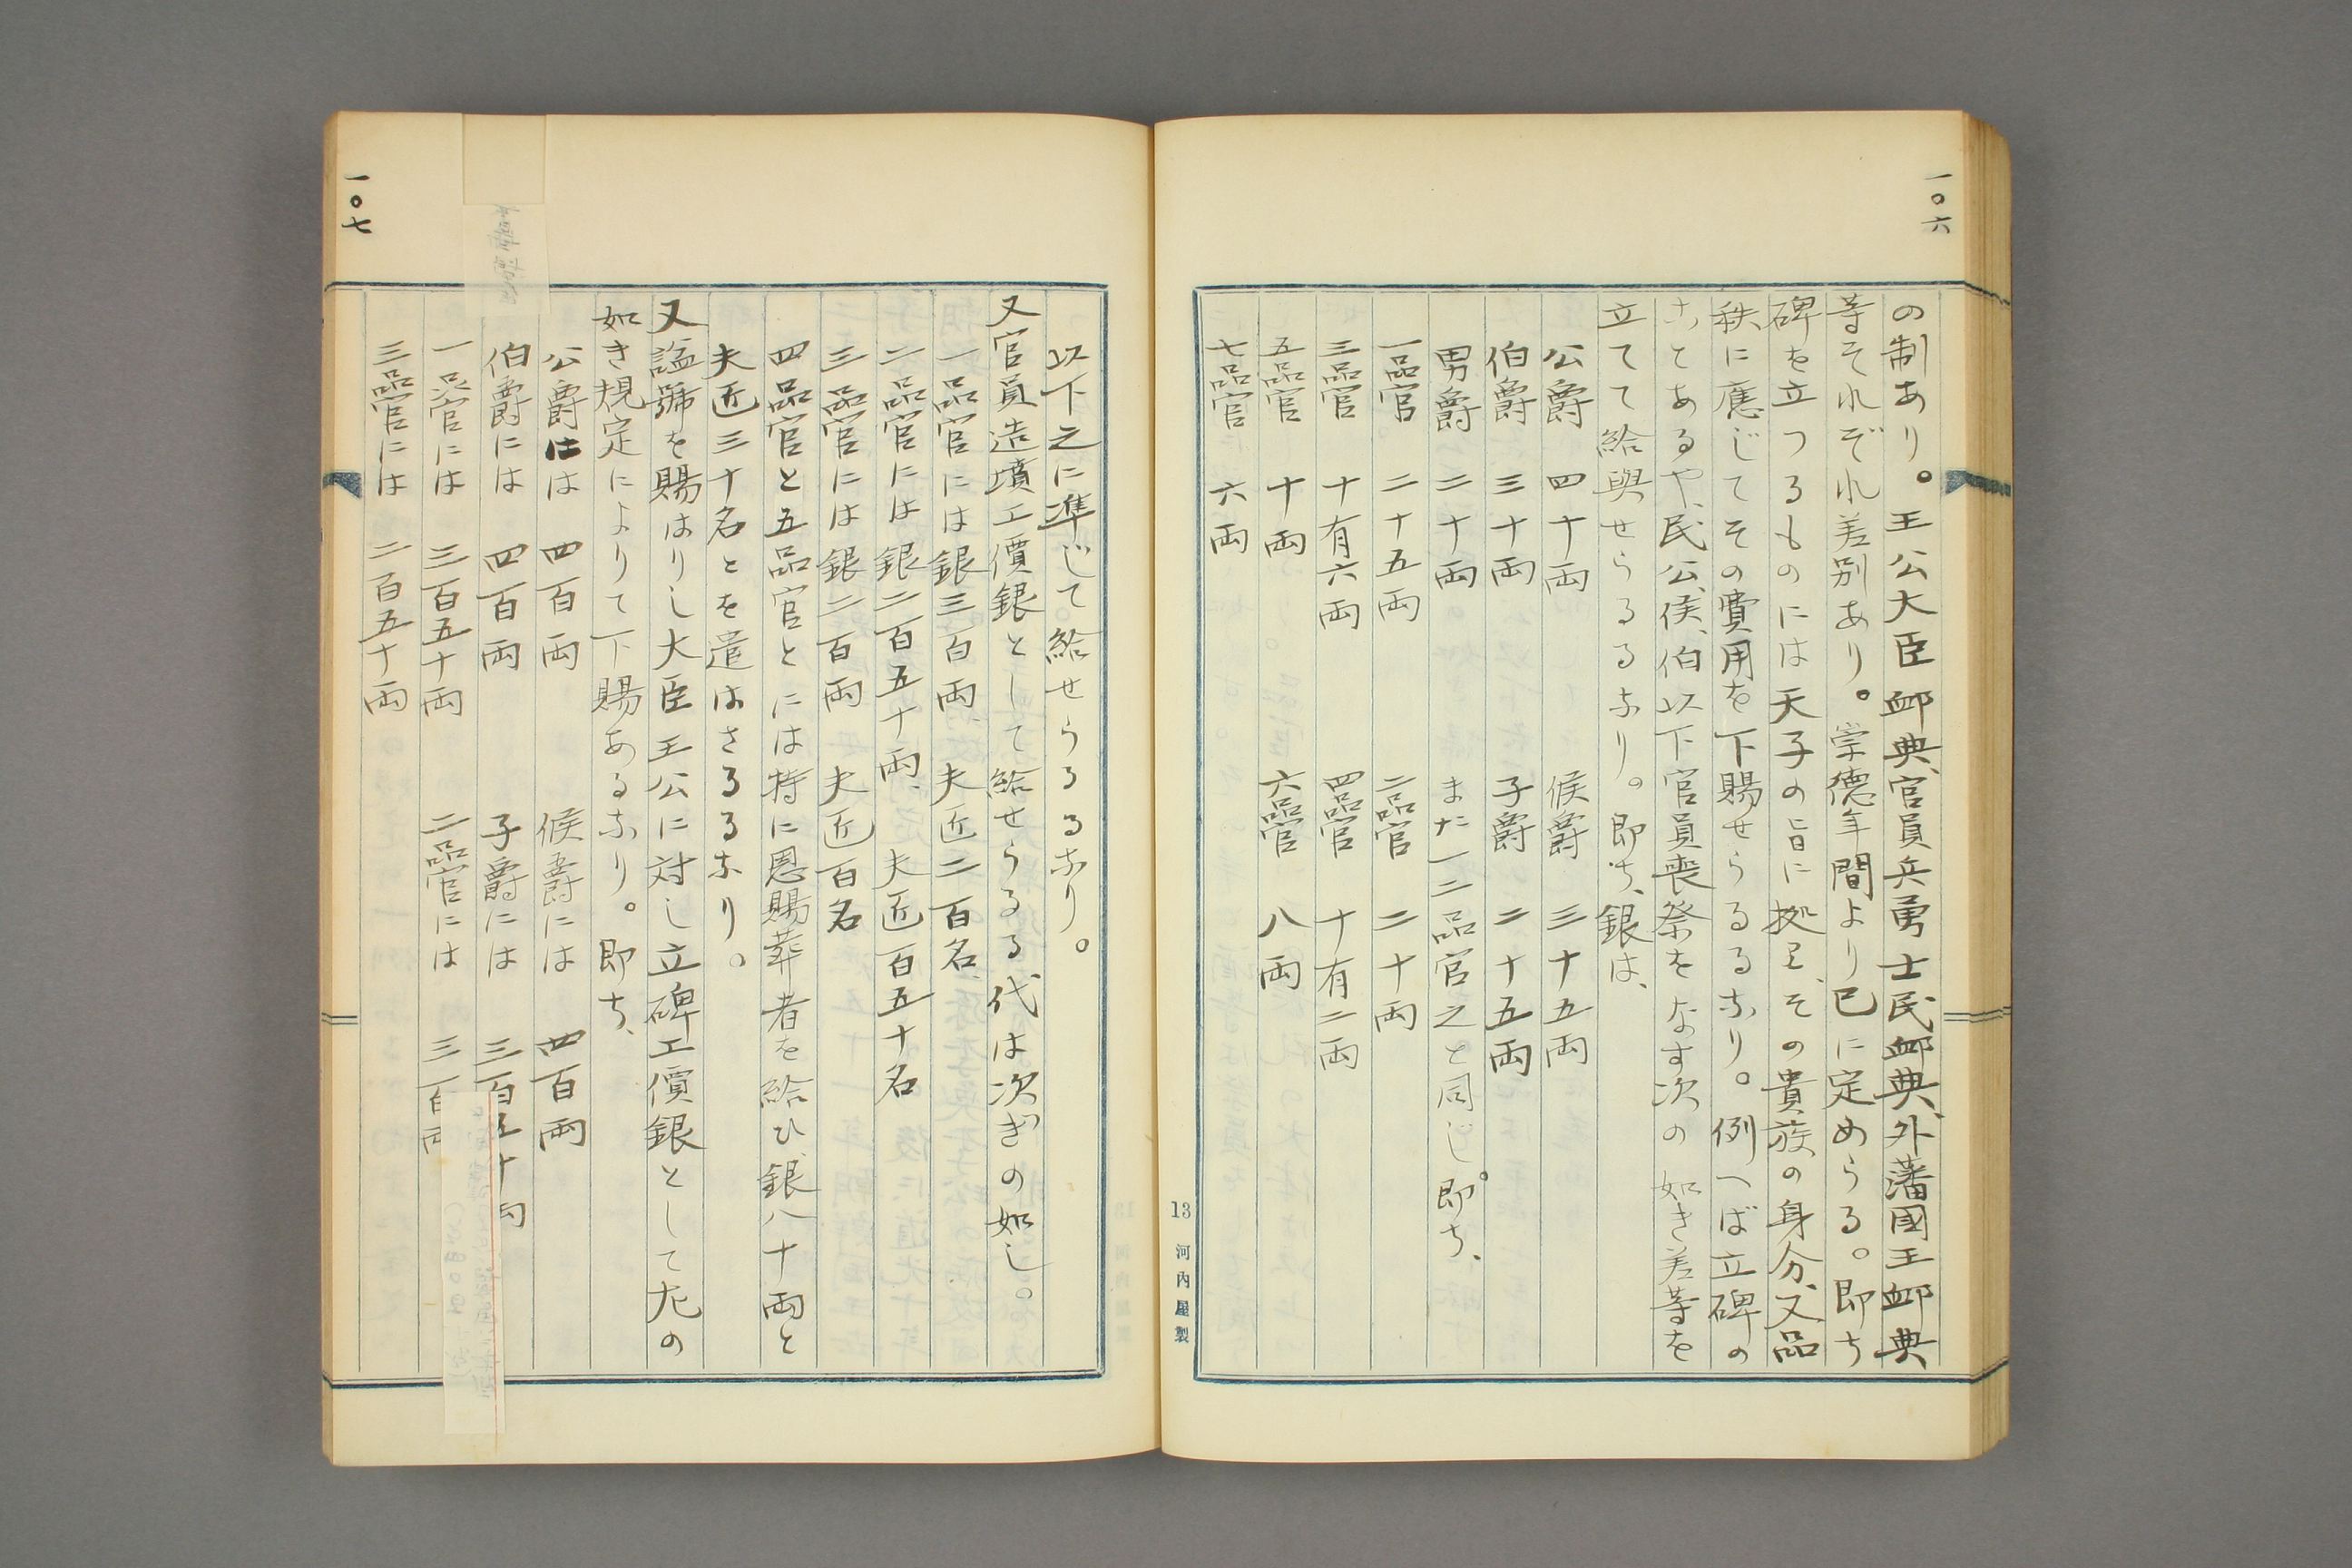 一〇六
の制あり。王公大臣䘏典、官員兵勇士民䘏典、外藩國王䘏典
等それぞれ差別あり。崇德年間より已に定めらる。即ち
碑を立つるものには天子の旨に拠る、その貴族の身分、又品
秩に應じてその費用を下賜せらるるなり。例へば立碑の
ことあるや、民公、侯、伯以下官員喪祭をなす次の如き差等を
立てて給與せらるるなり。即ち、銀は、
公爵 四十両 侯爵 三十五両
伯爵 三十両 子爵 二十五両
男爵 二十両 また一二品官之と同じ。即ち、
一品官 二十五両 二品官 二十両
三品官 十有六両 四品官 十有二両
五品官 十両 六品官 八両
七品官 六両
13 河內屋製
一〇七
以下之に準じて給せらるるなり。
又官員造墳工價銀として給せらるる代は次ぎの如し。
一品官には銀三百両、夫匠二百名、
二品官には銀二百五十両、夫匠百五十名
三品官には銀二百両 夫匠百名
四品官と五品官とには特に恩賜葬者を給ひ、銀八十両と
夫匠三十名とを遣はさるるなり。
又謚號を賜はりし大臣王公に対し立碑工價銀として左の
如き規定によりて下賜あるなり。即ち、
公爵には 四百両 侯爵には 四百両
伯爵には 四百両 子爵には 三百五十両
一品官には 三百五十両 二品官には 三百両
三品官には 二百五十両